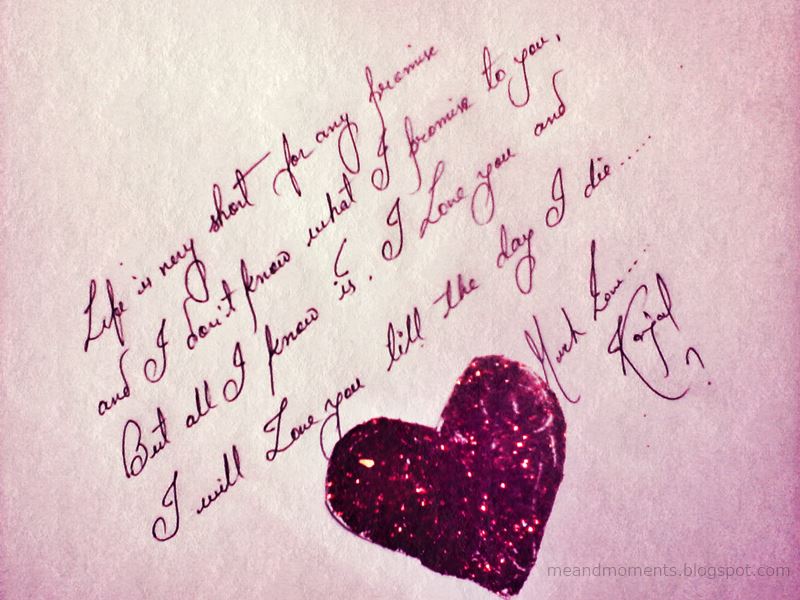 Life is very short for any promise
and I don't know what I promise to you,
But all I know is. I Love you and
I will Love you till the day I die.....
Much Love...
meandmoments.blogspot.com